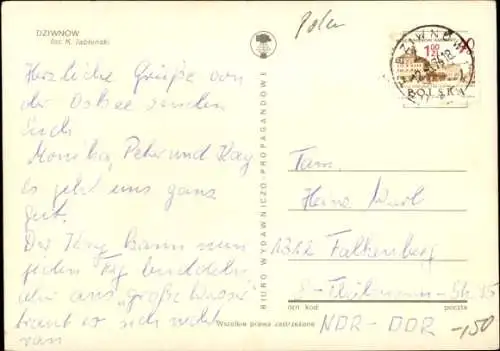 DZIWNÓW
fot. K. Jabłoński
Herzliche Grüße von
der Ostsee senden
Euch
Monika, Peter und Kay
es geht uns ganz
gut.
Der Kay kann nun
jeden Tag buddeln
aber ans "große Wasser"
traut er sich nicht
ran
BIURO WYDAWNICZO-PROPAGANDOWE
Polen
1,50 ZŁ
POLSKA
Fam.
Heinz
1312 Falkenberg
E.-Thälmann-Str. 15
ocn kod
poczta
Wszelkie prawa zastrzeżone
NDR - DDR
-150